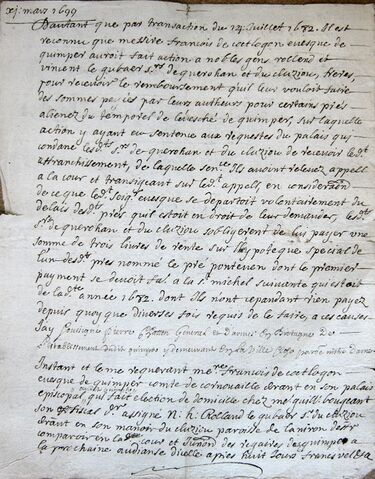 xj. mars 1699
Dautant que par transaction du 14 Juillet 1682. Il est
reconnu que messire francois de coetlogon evesque de
quimper auroit fait action a nobles gens rolland et
vincent le gubaer srs de querohan et du cluziou, freres,
pour recevoir le remboursement quil leur vouloit faire
des sommes payés par leurs autheurs pour certains prés
alienez du temporel de levesché de quimper, sur laquelle
action y ayant eu sentence aux requestes du palais quy
condane lesdts srs de querohan et du cluziou de recevoir ledt
affranchissement, de laquelle sence Ils avoint relevez appell
a la cour et transigeant sur ledt appell, en consideraon
de ce que ledt seigr evesque se departoit volontairement du
delais desdts prés quil estoit en droit de leur demander, lesdts
srs de querohan et du cluziou sobligerent de luy payer une
somme de trois livres de rente sur lhypoteque special de
lun desdts pres nommé le pré ponteven dont le premier
payment se devoit fae a la st michel suivante quj estoit
de ladte année 1682. dont Ils nont cependant rien payez
depuis quoy que diverses fois requis de le faire, a ces causes
Jay sousigné pierre general et darmes en bretagne de
letablissement dudit quimper y demeurant en la ville close paroisse notre dame
Instant et le me requerant mere francois de coetlogon
evesque de quimper comte de cornouaille demt en son palais
episcopal, quj fait election de domicile chez me guill:
son assigné N. h. Rolland le gubaer sr du cluziou
demt en son manoir du cluziou paroisse de laniron
comparoir en la cour et Jurisd des regaires de quimper a
la prochaine audianse dicelle apres huit Jours francs